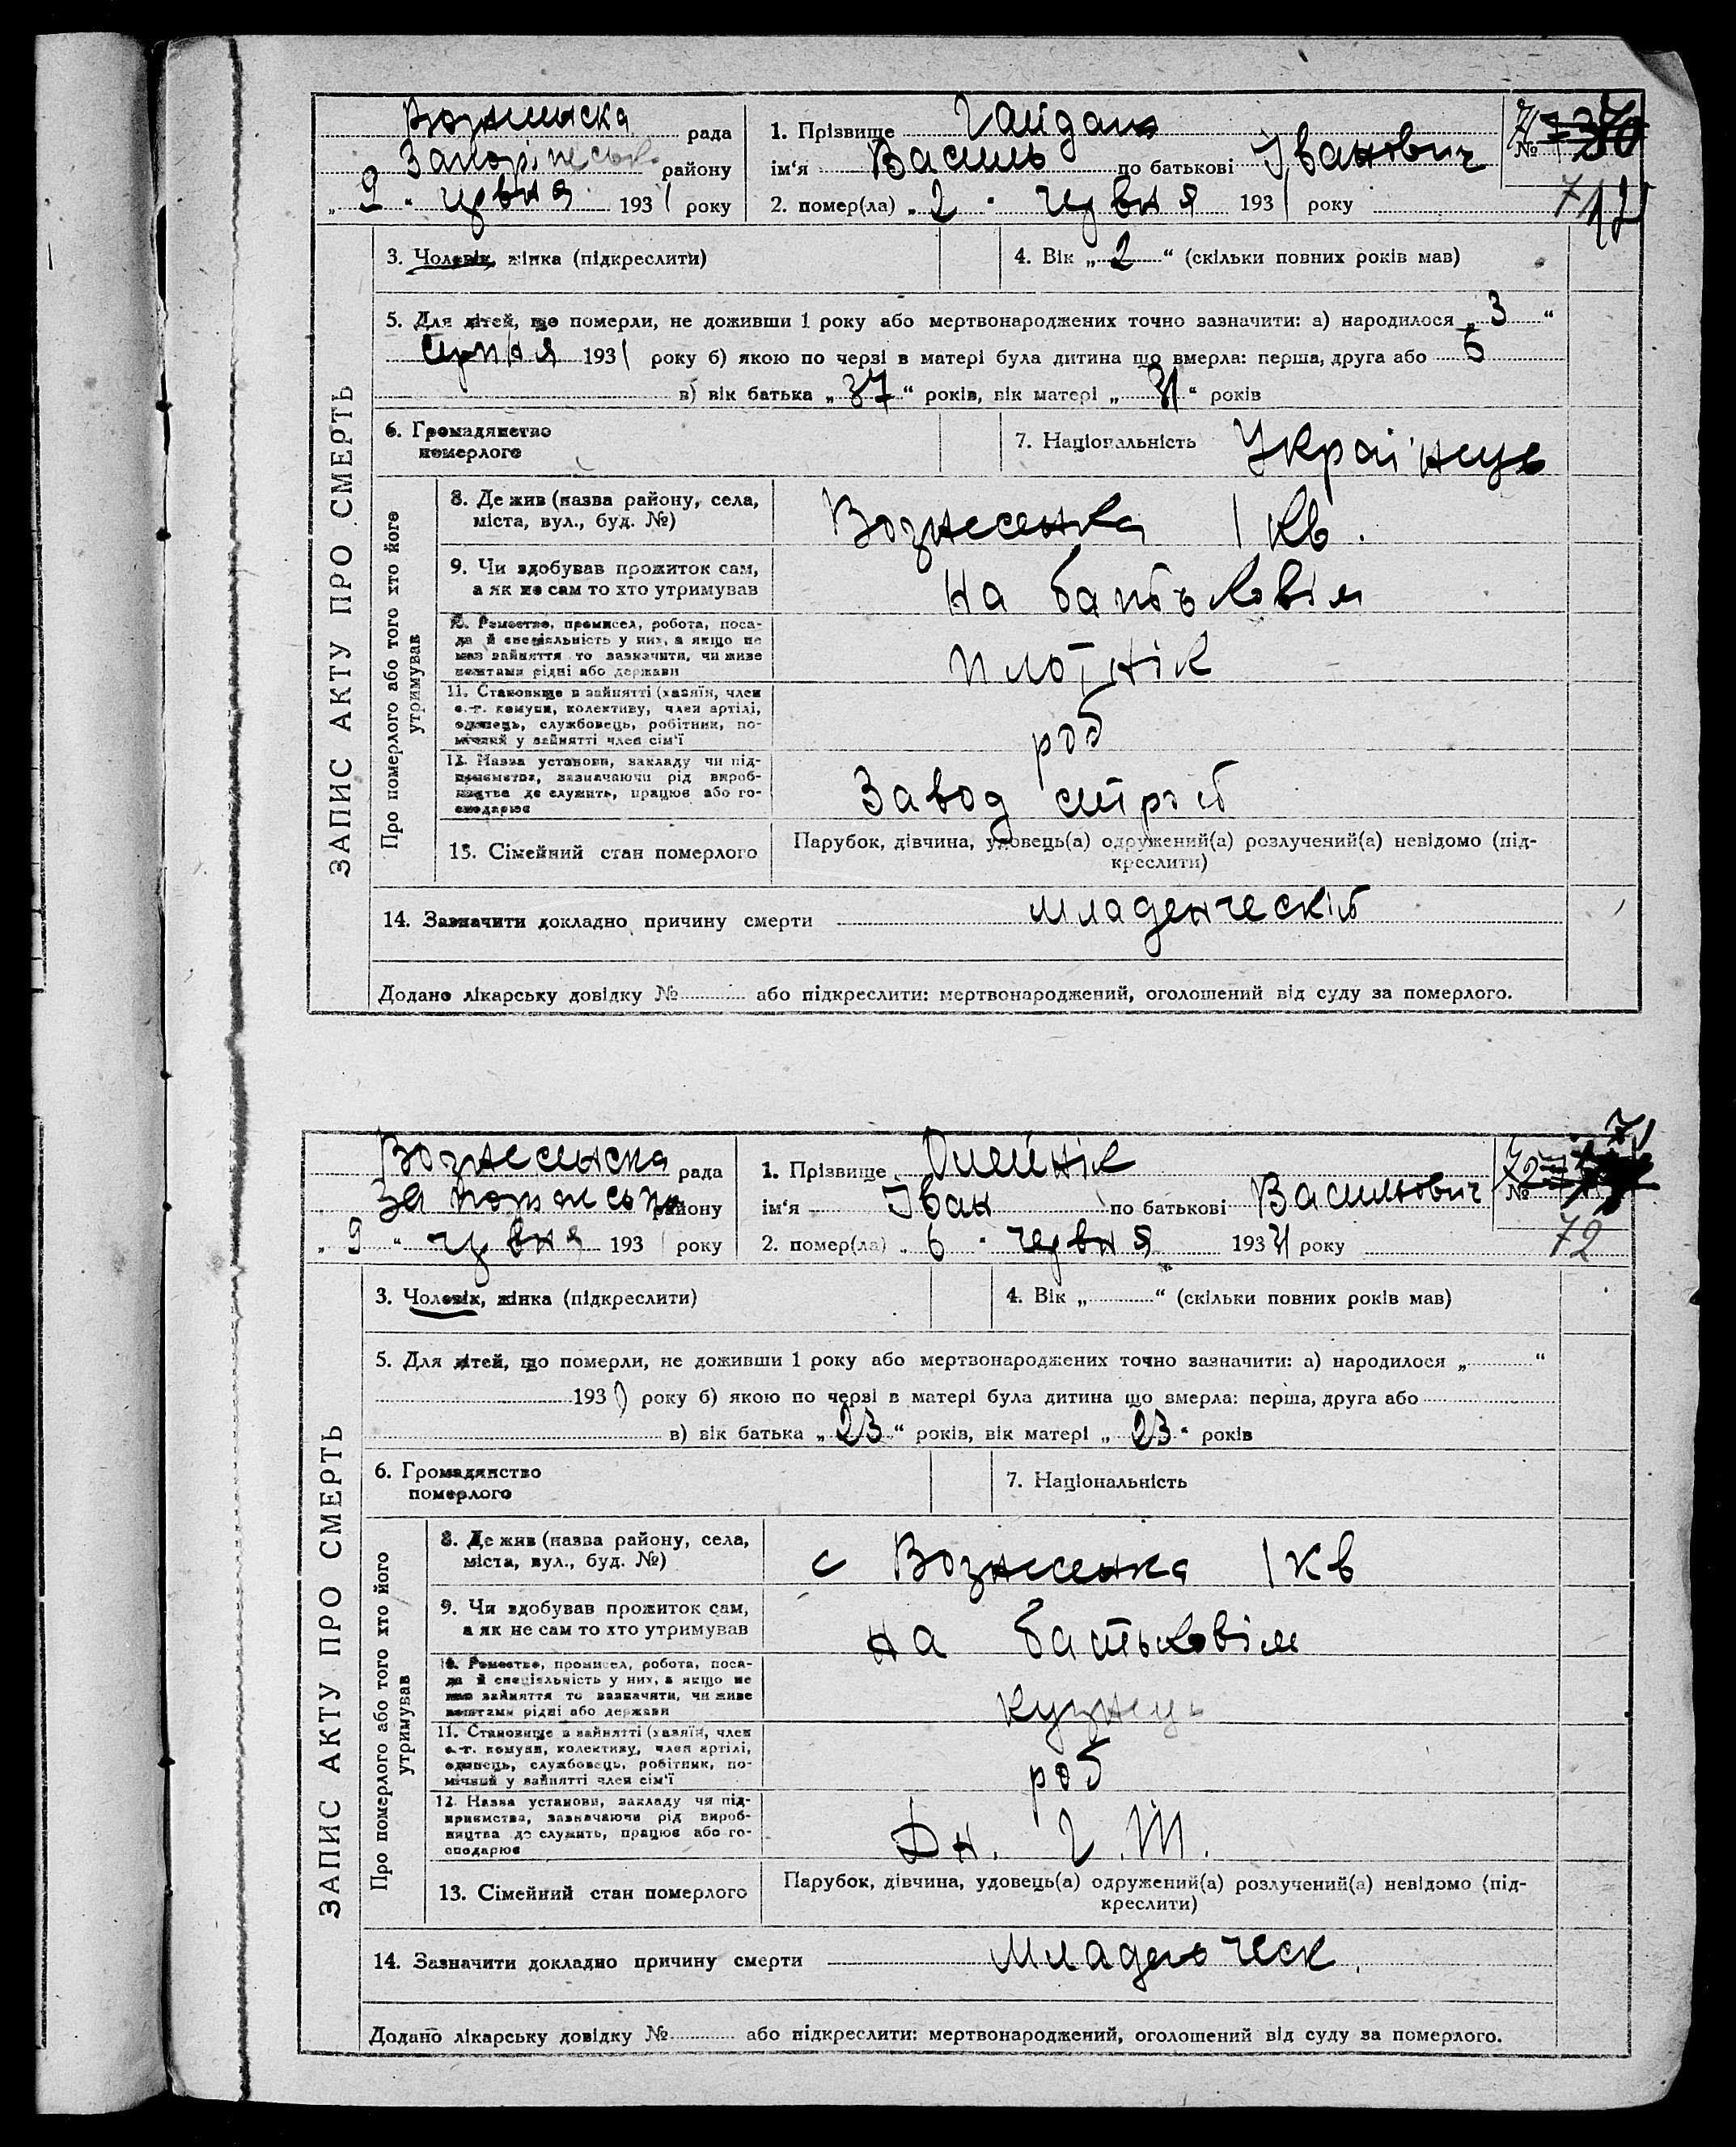 Вознесенська рада
Запоріжської району
„ 9 “ червня 1931 року
1. Прізвище Гайдан
ім‘я Василь по батькові Іванович
2. помер(ла) „ 2 “ червня 1931 року
№
71
ЗАПИС АКТУ ПРО СМЕРТЬ
3. Чоловік, жінка (підкреслити)
4. Вік „ 2 “ (скільки повних років мав)
5. Для дітей, що померли, не доживши 1 року або мертвонароджених точно зазначити: а) народилося „ 3 “
серпня 1931 року б) якою по черзі в матері була дитина що вмерла: перша, друга або 6
в) вік батька „ 37 “ років, вік матері „ 31 “ років
6. Громадянство
померлого
7. Національність Україн'нець
Про померлого або того хто його
утримував
8. Де жив (назва району, села,
міста, вул., буд. №)
Вознесенка 1 кв.
9. Чи здобував прожиток сам,
а як не сам то хто утримував
на батьковім
10. Ремество, промисел, робота, поса-
да й спеціяльність у них, а якщо не
мав зайняття то зазначити, чи живе
коштами рідні або держави
плотнік
11. Становище в зайнятті (хазяїн, член
с.-г. комуни, колективу, член артілі,
одинець, службовець, робітник, по-
мічний у зайнятті член сім‘ї
роб
12. Назва установи, закладу чи під-
приємства, зазначаючи рід вироб-
ництва де служить, працює або го-
сподарює
Завод строй
13. Сімейний стан померлого
Парубок, дівчина, удовець(а) одружений(а) розлучений(а) невідомо (під-
креслити)
14. Зазначити докладно причину смерти младенческій
Додано лікарську довідку № або підкреслити: мертвонароджений, оголошений від суду за померлого.
Вознесенська рада
Запоріжської району
„ 9 “ червня 193 року
1. Прізвище Олейнік
ім‘я Іван по батькові Васильович
2. помер(ла) „ 6 “ червня 1931 року
№
72
ЗАПИС АКТУ ПРО СМЕРТЬ
3. Чоловік, жінка (підкреслити)
4. Вік „ “ (скільки повних років мав)
5. Для дітей, що померли, не доживши 1 року або мертвонароджених точно зазначити: а) народилося „ “
193 року б) якою по черзі в матері була дитина що вмерла: перша, друга або
в) вік батька „ 23 “ років, вік матері „ 23 “ років
6. Громадянство
померлого
7. Національність
Про померлого або того хто його
утримував
8. Де жив (назва району, села,
міста, вул., буд. №)
с Вознесенка 1 кв
9. Чи здобував прожиток сам,
а як не сам то хто утримував
на батьковім
10. Ремество, промисел, робота, поса-
да й спеціяльність у них, а якщо не
мав зайняття то зазначити, чи живе
коштами рідні або держави
кузнець
11. Становище в зайнятті (хазяїн, член
с.-г. комуни, колективу, член артілі,
одинець, службовець, робітник, по-
мічний у зайнятті член сім‘ї
роб
12. Назва установи, закладу чи під-
приємства, зазначаючи рід вироб-
ництва де служить, працює або го-
сподарює
Дн. Г. Т.
13. Сімейний стан померлого
Парубок, дівчина, удовець(а) одружений(а) розлучений(а) невідомо (під-
креслити)
14. Зазначити докладно причину смерти Младенческ.
Додано лікарську довідку № або підкреслити: мертвонароджений, оголошений від суду за померлого.